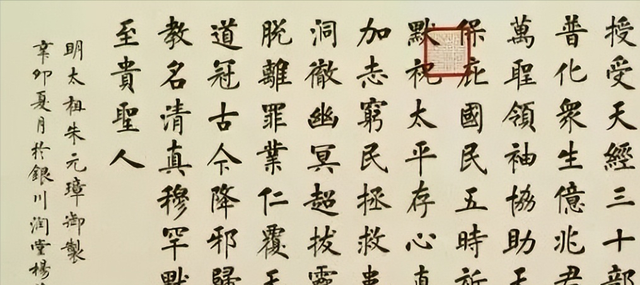 授受天經三十部
普化衆生億兆君
萬聖領袖協助天
保庇國民五時祈
默祝太平存心真
加志窮民拯救患
洞徹幽冥超拔靈
脱離罪業仁覆天
道冠古今降邪歸
教名清真穆罕默
至貴聖人
明太祖朱元璋御製
辛卯夏月於銀川潤堂楊